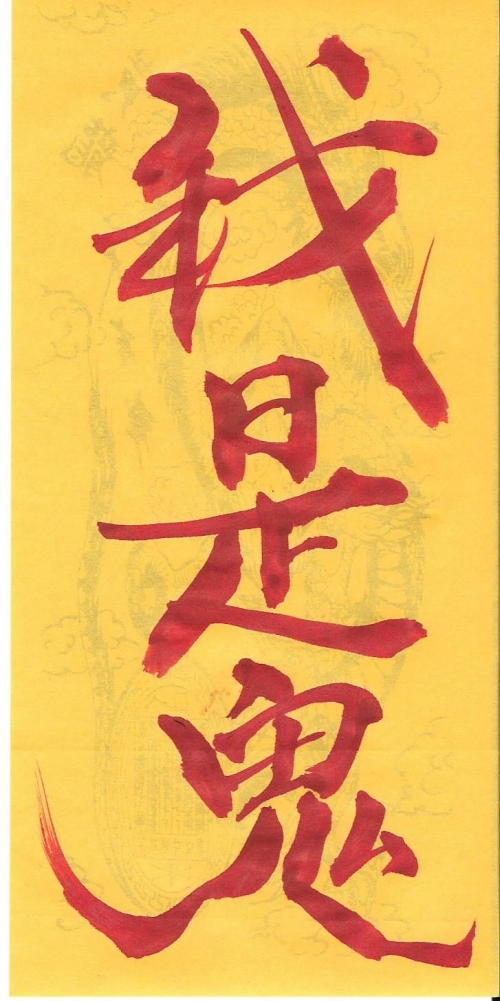 我是鬼